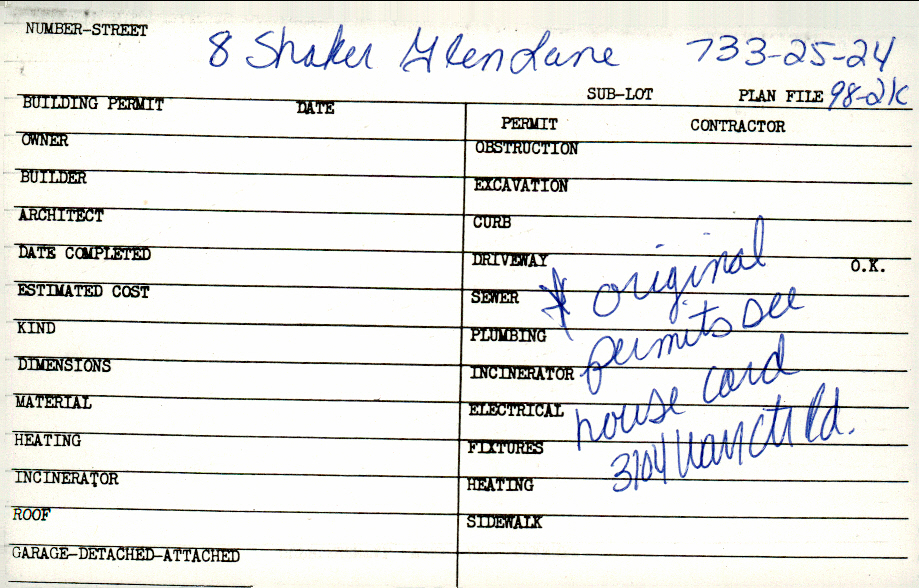 NUMBER-STREET 8 Shaker Glen Lane 733-25-24
SUB-LOT PLAN FILE 98-21C
BUILDING PERMIT DATE
PERMIT CONTRACTOR
OWNER
OBSTRUCTION
BUILDER
EXCAVATION
ARCHITECT
CURB
DATE COMPLETED
DRIVEWAY O.K.
ESTIMATED COST
SEWER
KIND
PLUMBING
DIMENSIONS
INCINERATOR
MATERIAL
ELECTRICAL
HEATING
FIXTURES
INCINERATOR
HEATING
ROOF
SIDEWALK
GARAGE-DETACHED-ATTACHED
* original
permits see
house card
3104 Rd.